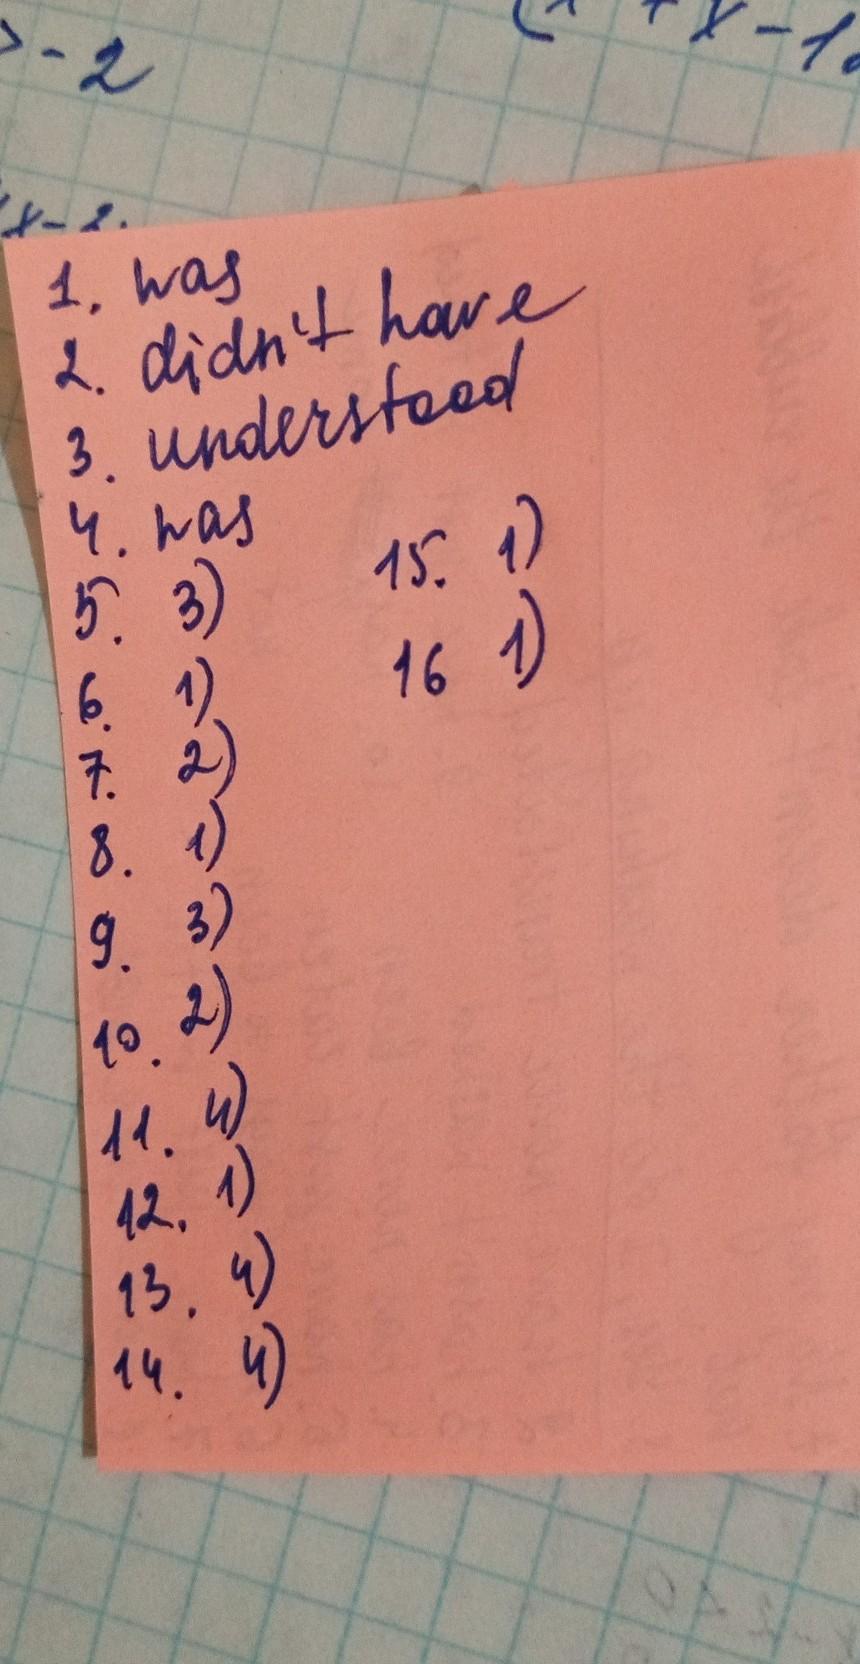 >-2
1. was
2. didn't have
3. understood
4. was
5. 3)
6. 1)
7. 2)
8. 1)
9. 3)
10. 2)
11. 4)
12. 1)
13. 4)
14. 4)
15. 1)
16 1)